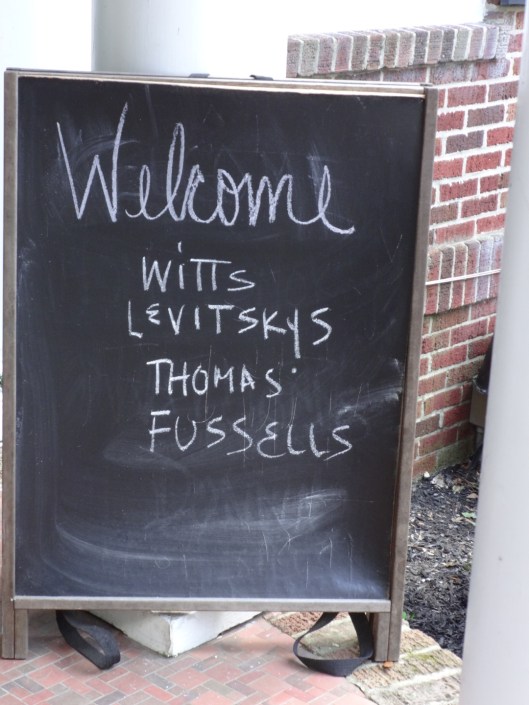 Welcome
WITTS
LEVITSKYS
THOMAS'
FUSSELLS